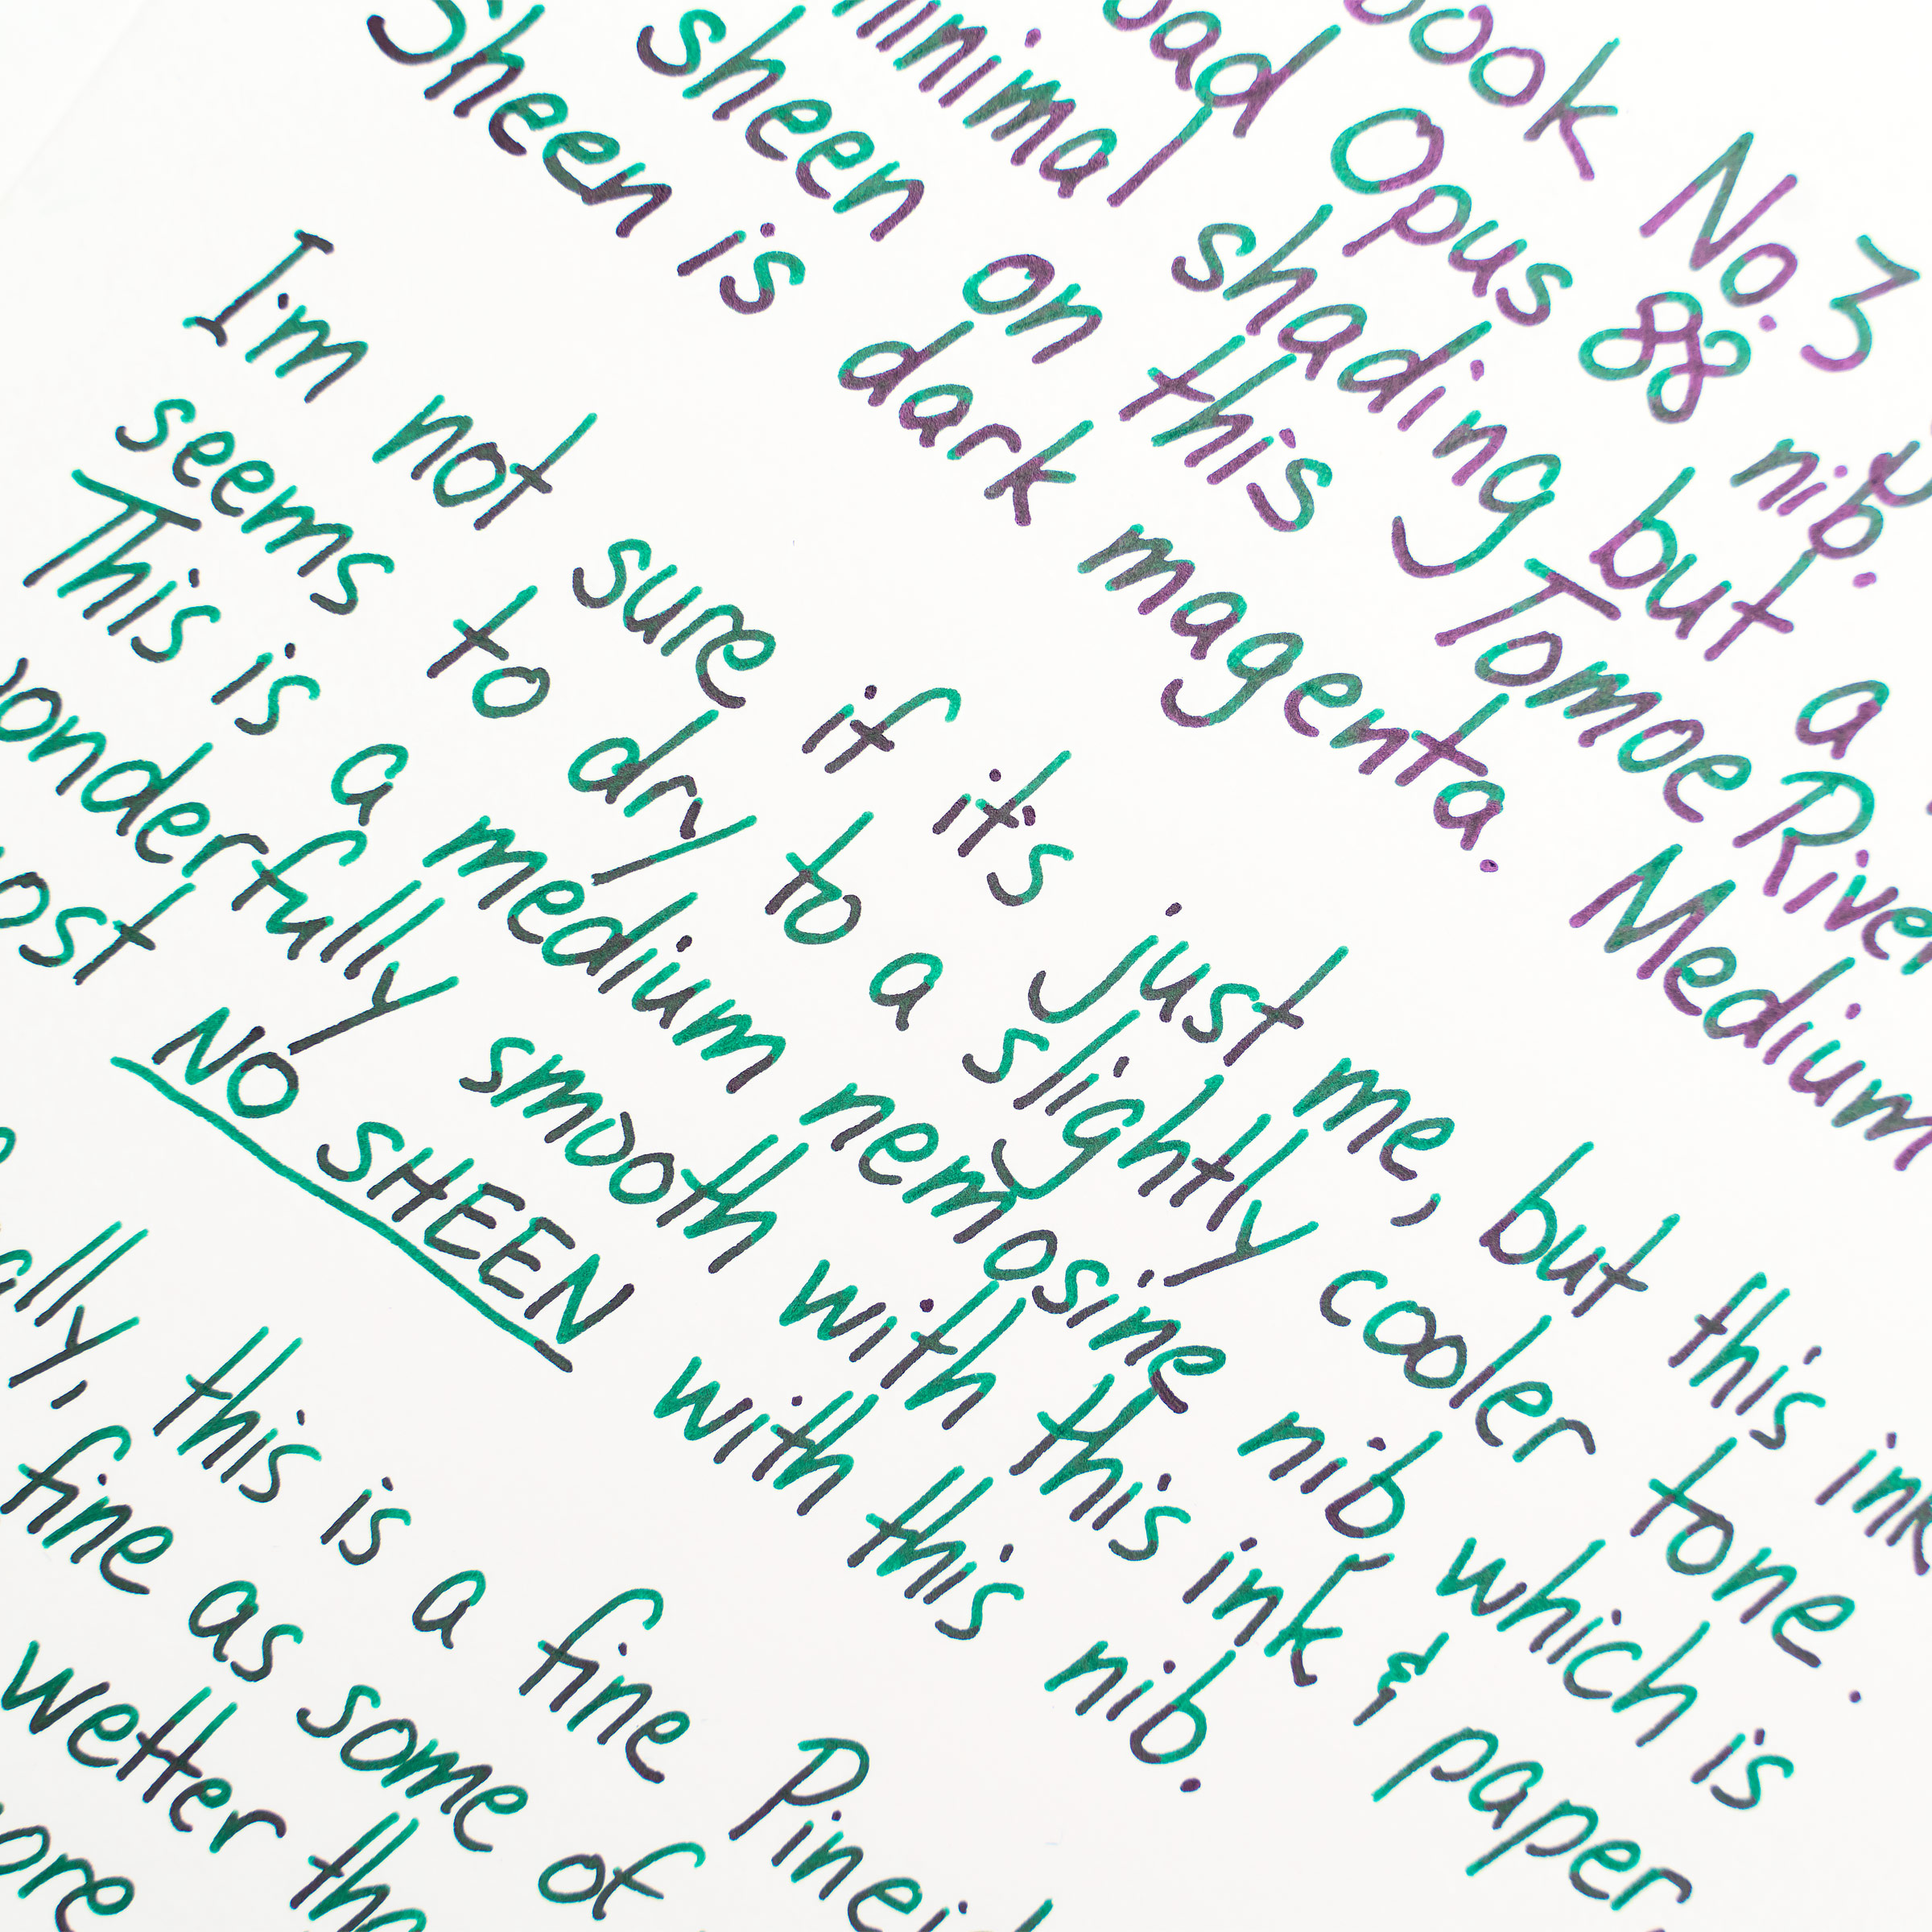 ook No. 3
oad Opus 88 nib.
minimal shading but a
sheen on this Tomoe River
Sheen is dark magenta. Medium
I'm not sure if it's just me, but this ink
seems to dry to a slightly cooler tone.
This is a medium nemosine nib which is
onderfully smooth with this ink & paper
ost NO SHEEN with this nib.
ally, this is a fine Pineid
fine as some of
wetter tha
ore